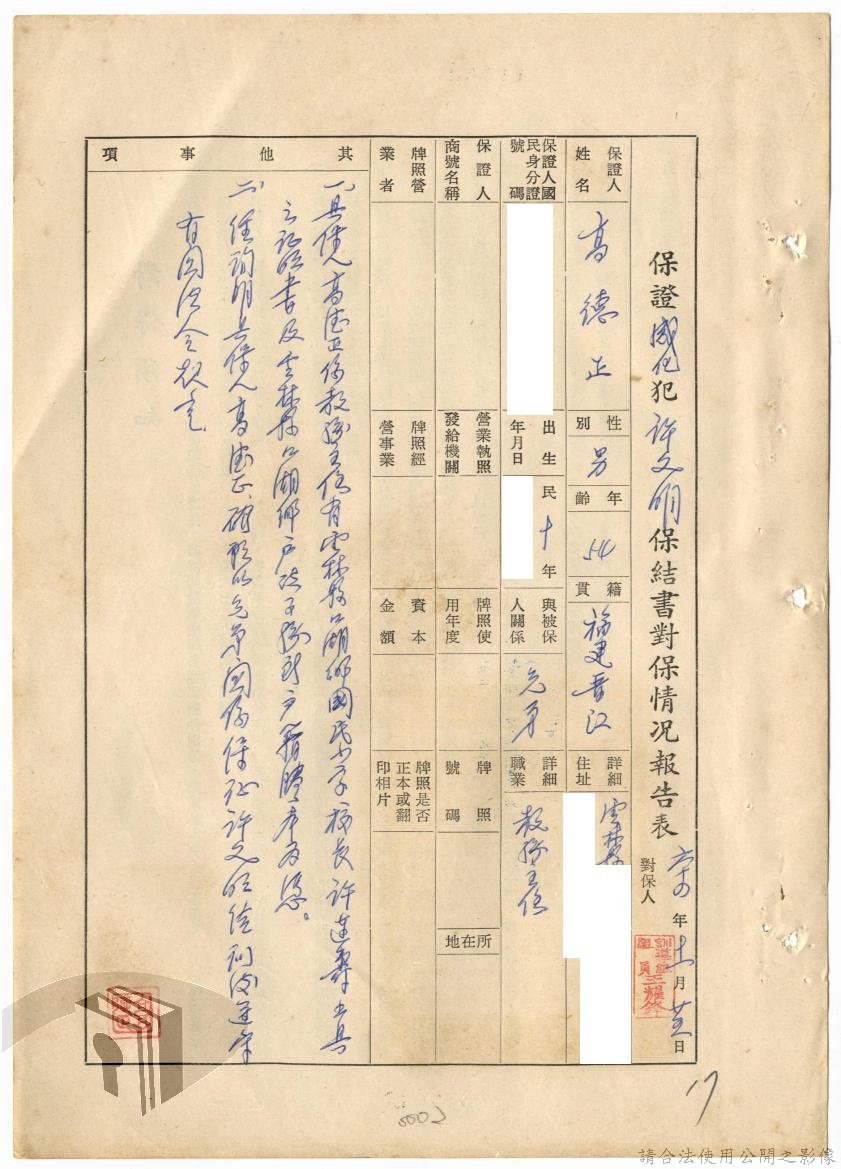 保證感化犯許文明保結書對保情況報告表
六十四年十一月廿五日
對保人
訓導組組員王耀欽
保證人姓名
高德正
性別
男
年齡
54
籍貫
福建晉江
詳細住址
雲林縣
保證人國民身分證號碼
出生年月日
民十年
與被保人關係
兄弟
詳細職業
教務主任
保證人商號名稱
營業執照發給機關
牌照使用年度
牌照號碼
所在地
牌照營業者
牌照經營事業
資本金額
牌照是否正本或翻印相片
其他事項
一、具保人高德正係教務主任有雲林縣口湖鄉國民小學校長許
之証明書及雲林縣口湖鄉戶政事務所戶籍謄本為憑。
二、經詢明具保人高德正、確能以兄弟關係保証許文明結訓後遵守
有關法令規定
17
請合法使用公開之影像